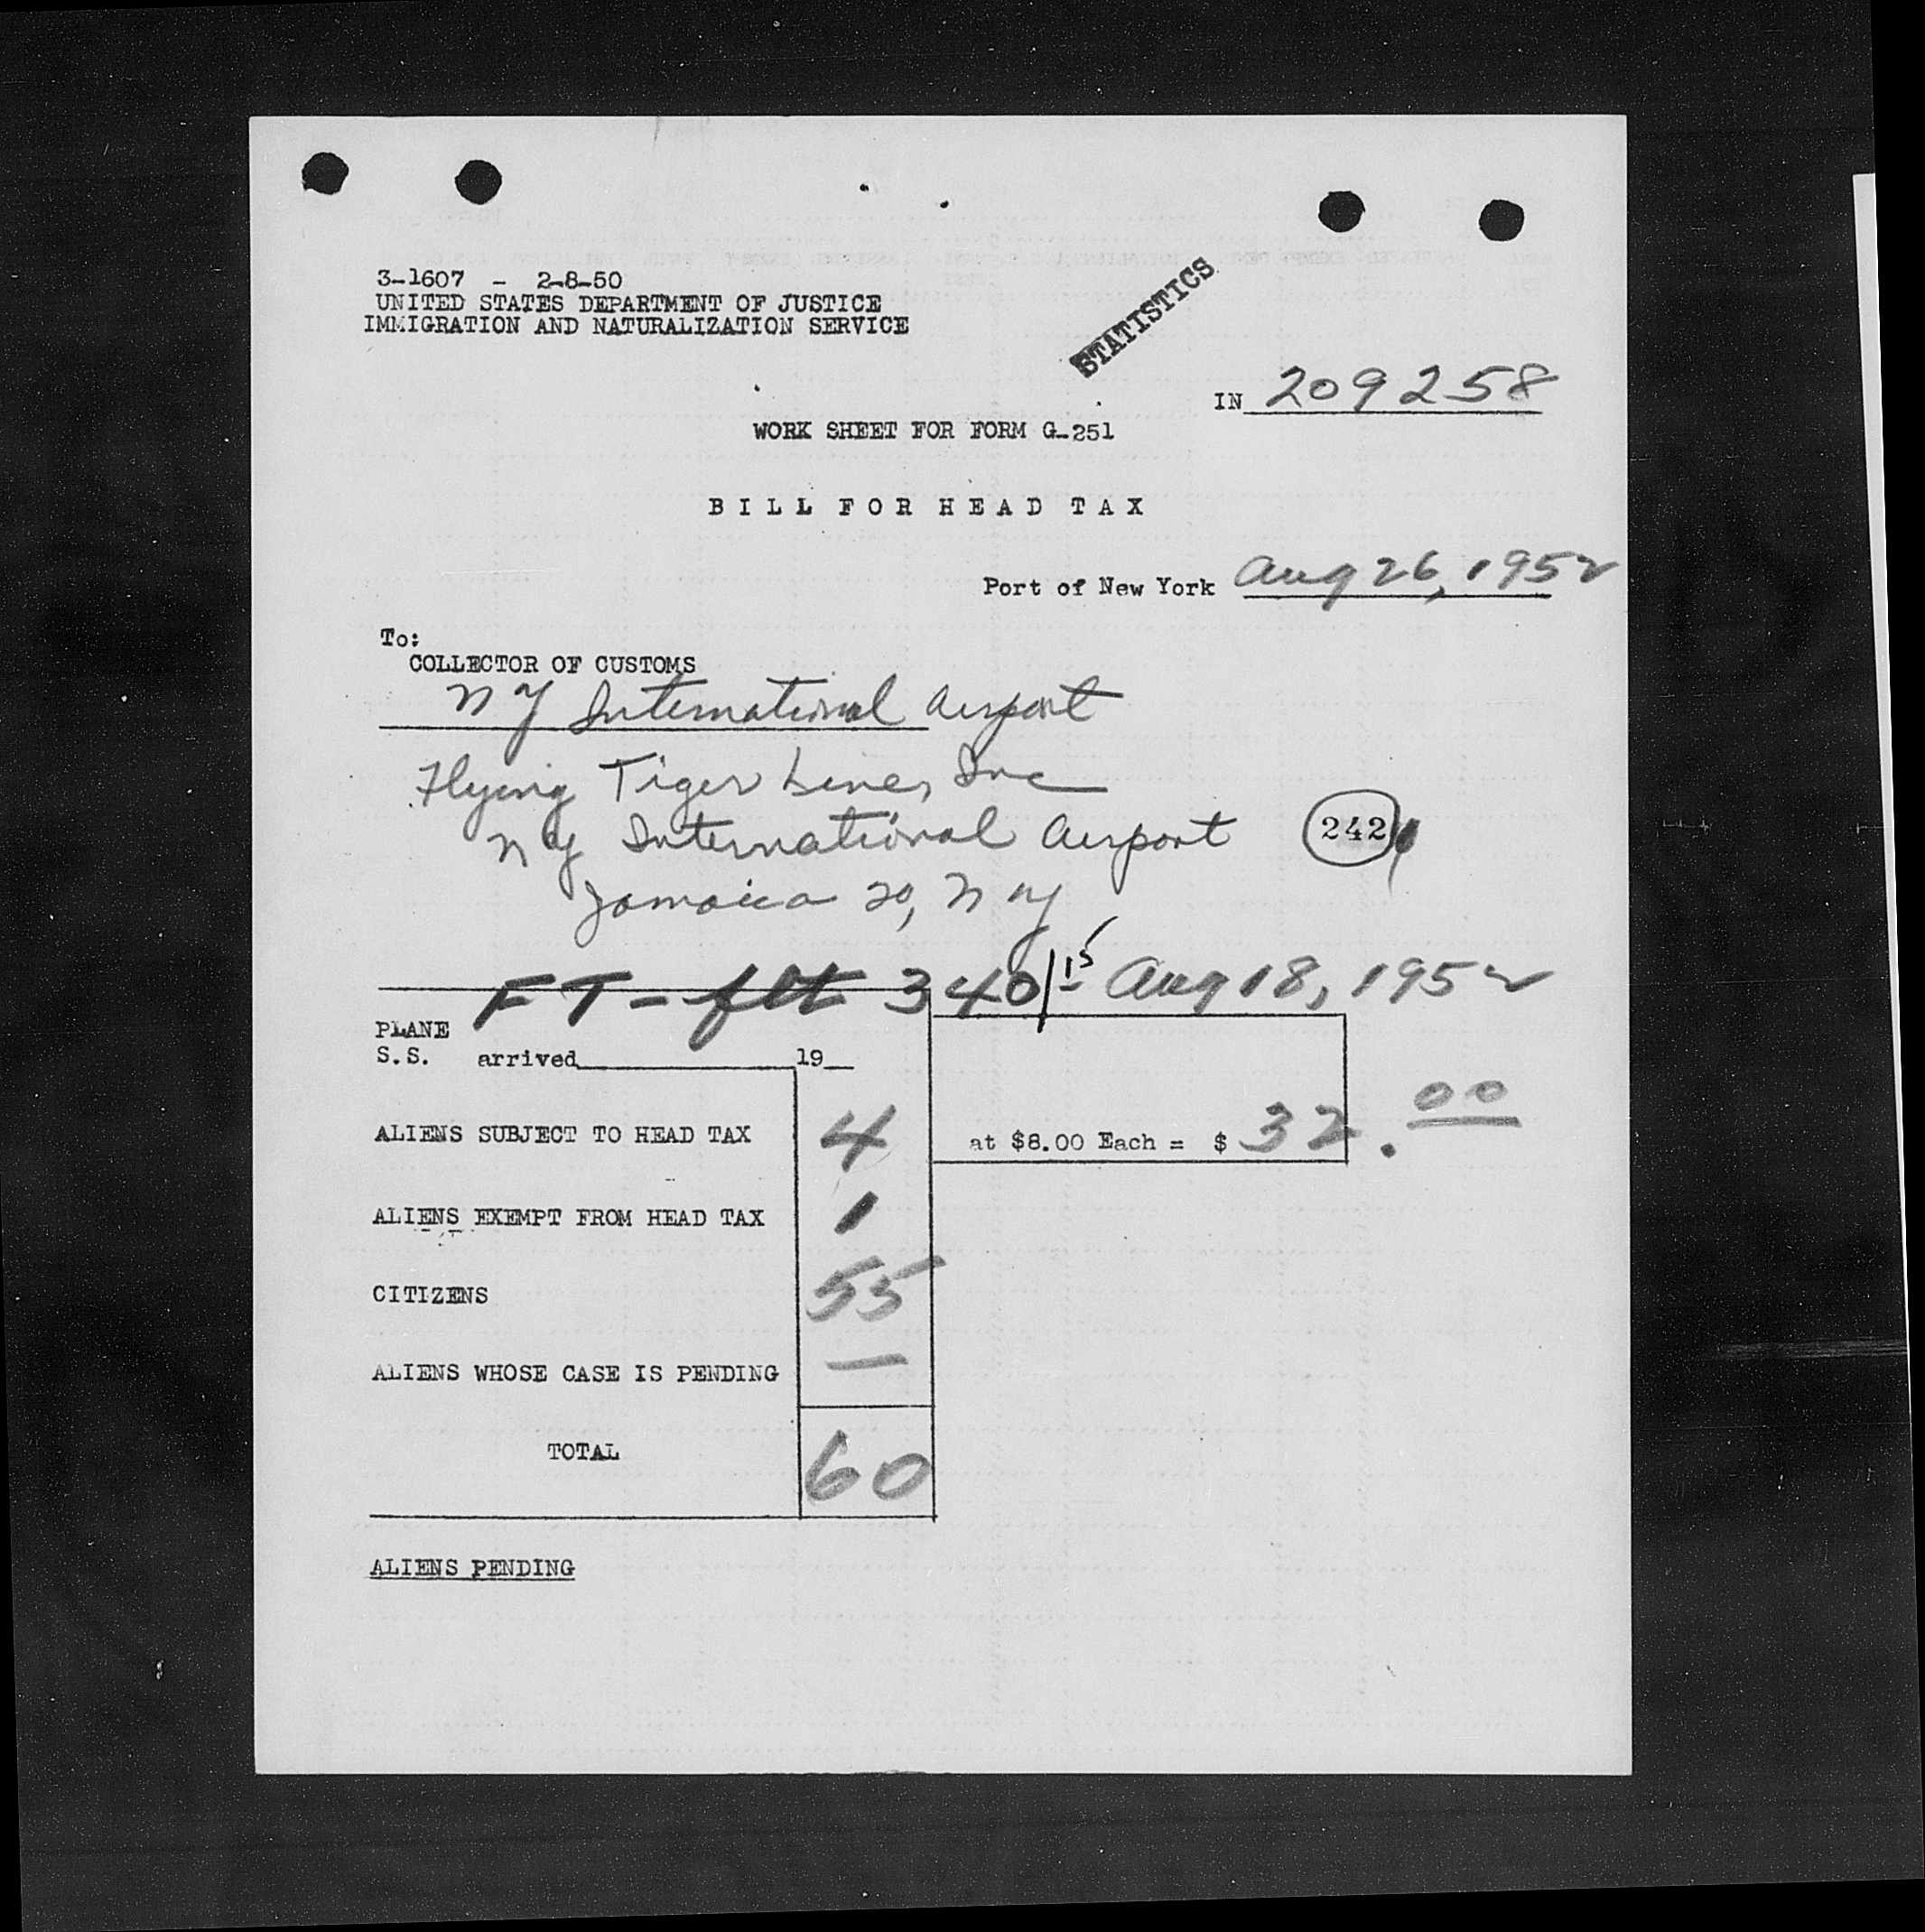 3-1607 - 2-8-50
UNITED STATES DEPARTMENT OF JUSTICE
IMMIGRATION AND NATURALIZATION SERVICE
STATISTICS
IN 209258
WORK SHEET FOR FORM G-251
BILL FOR HEAD TAX
Port of New York Aug 26, 1952
To:
COLLECTOR OF CUSTOMS
N Y International Airport
Flying Tiger Line, Inc
N Y International Airport
242
Jamaica 20, N Y
FT - flt 340/15 Aug 18, 1952
PLANE
S.S. arrived 19
ALIENS SUBJECT TO HEAD TAX 4 at $8.00 Each = $ 32.00
ALIENS EXEMPT FROM HEAD TAX 1
CITIZENS 55
ALIENS WHOSE CASE IS PENDING —
TOTAL 60
ALIENS PENDING